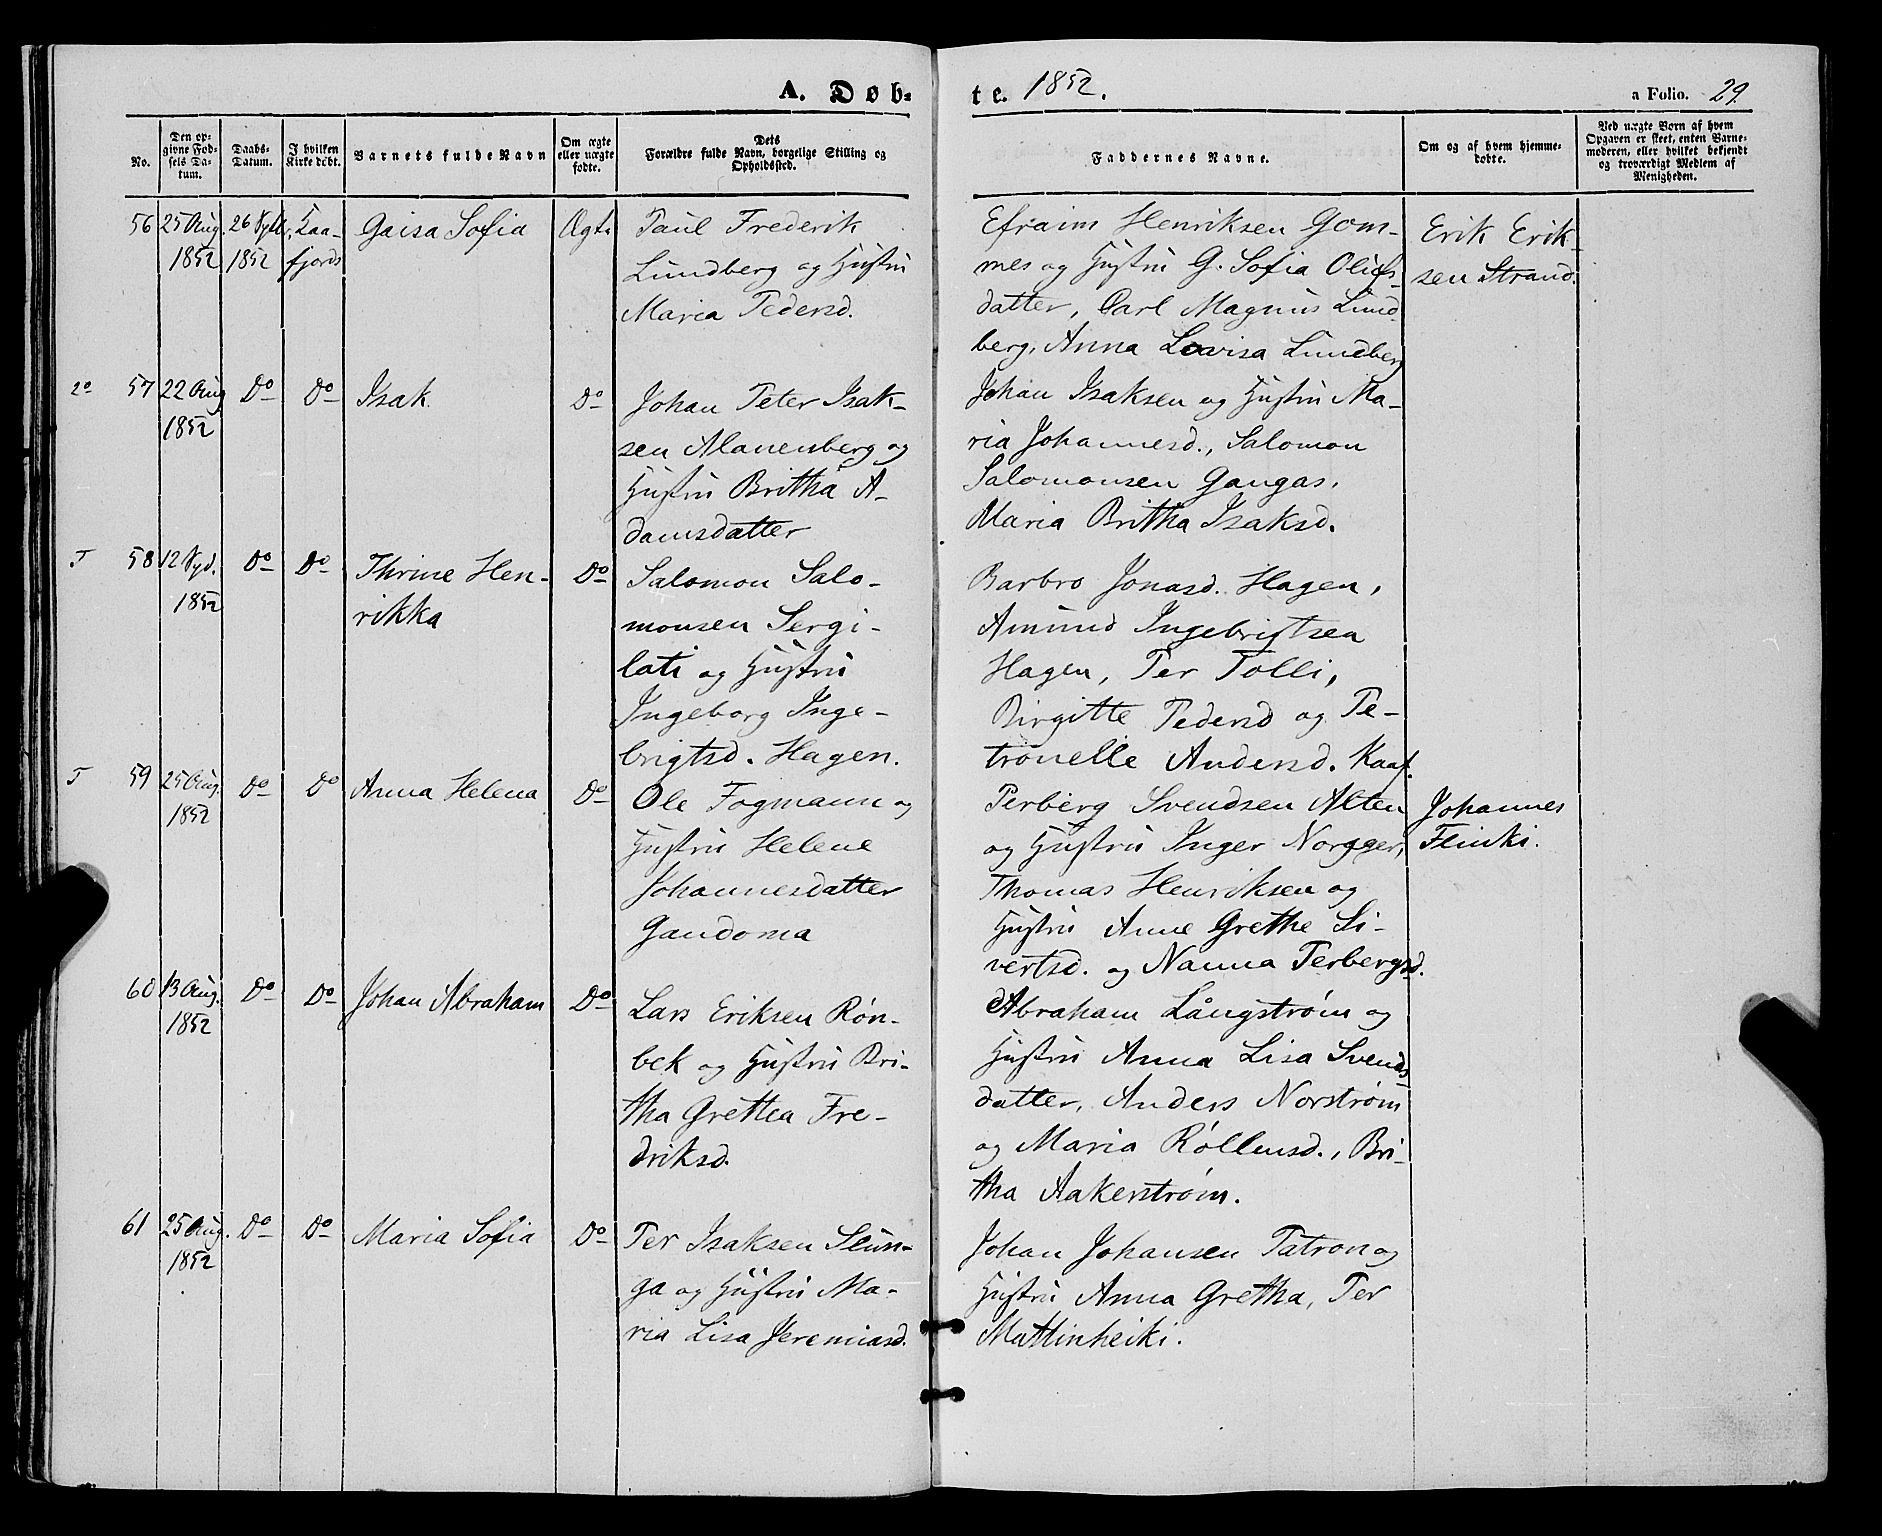 A. Døb-
te. 1852.
a Folio. 29.
No.
Den op-
givne Fød-
sels Da-
tum.
Daabs-
Datum.
I hvilken
Kirke døbt.
Barnets fulde Navn
Om ægte
eller uægte
fødte.
Dets
Forældre fulde Navn, borgelige Stilling og
Opholdssted.
Faddernes Navne.
Om og af hvem hjemme-
døbte.
Ved uægte Børn af hvem
Opgaven er skeet, enten Barne-
moderen, eller hvilket bekjendt
og troværdigt Medlem af
Menigheden.
56 25 Aug. 1852 26 Sptbr. 1852 Kaa-
fjords
Gaisa Sofia
Ægte
Paul Frederik
Lundberg og Hustru
Maria Pedersd.
Efraim Henriksen Gom-
mes og Hustru G. Sofia Olufs-
datter, Carl Magnus Lund-
berg, Anna Lovisa Lundberg
Erik Erik-
sen Strand.
2º 57 22 Aug 1852 Dº Dº Isak. Dº
Johan Peter Isak-
sen Alanenberg og
Hustru Britha A-
damsdatter
Johan Isaksen og Hustru Ma-
ria Johannesd., Salomon
Salomonsen Gangas,
Maria Britha Isaksd.
T 58 12 1852 Dº Dº
Thrine Hen-
rikka
Dº
Salomon Salo-
monsen Sergi-
lati og Hustru
Ingeborg Inge-
brigtsd. Hagen.
Barbro Jonasd. Hagen,
Amund Ingebrigtsen
Hagen, Per Tolli,
Birgitte Pedersd og Pe-
tronelle Andersd. Kaaf.
T 59 25 Aug. 1852 Dº Dº Anna Helena Dº
Ole Fogmann og
Hustru Helene
Johannesdatter
Gandoma
Perberg Svendsen Alten
og Hustru Inger Norgger,
Thomas Henriksen og
Hustru Anne Grethe Si-
vertsd. og Nanna Perbergsd.
Johannes
Flinki.
60 13 Aug. 1852 Dº Dº Johan Abraham Dº
Lars Eriksen Røn-
bek og Hustru Bri-
tha Grettea Fre-
driksd.
Abraham Långstrøm og
Hustru Anna Lisa Svends-
datter, Anders Norstrøm
og Maria Róllensd., Bri-
tha Aakerstrøm.
61 25 Aug. 1852 Dº Dº Maria Sofia Dº
Per Isaksen Slun-
ga og Hustru Ma-
ria Lisa Jeremiasd.
Johan Johansen Patron og
Hustru Anna Gretha, Per
Mattinheiki.